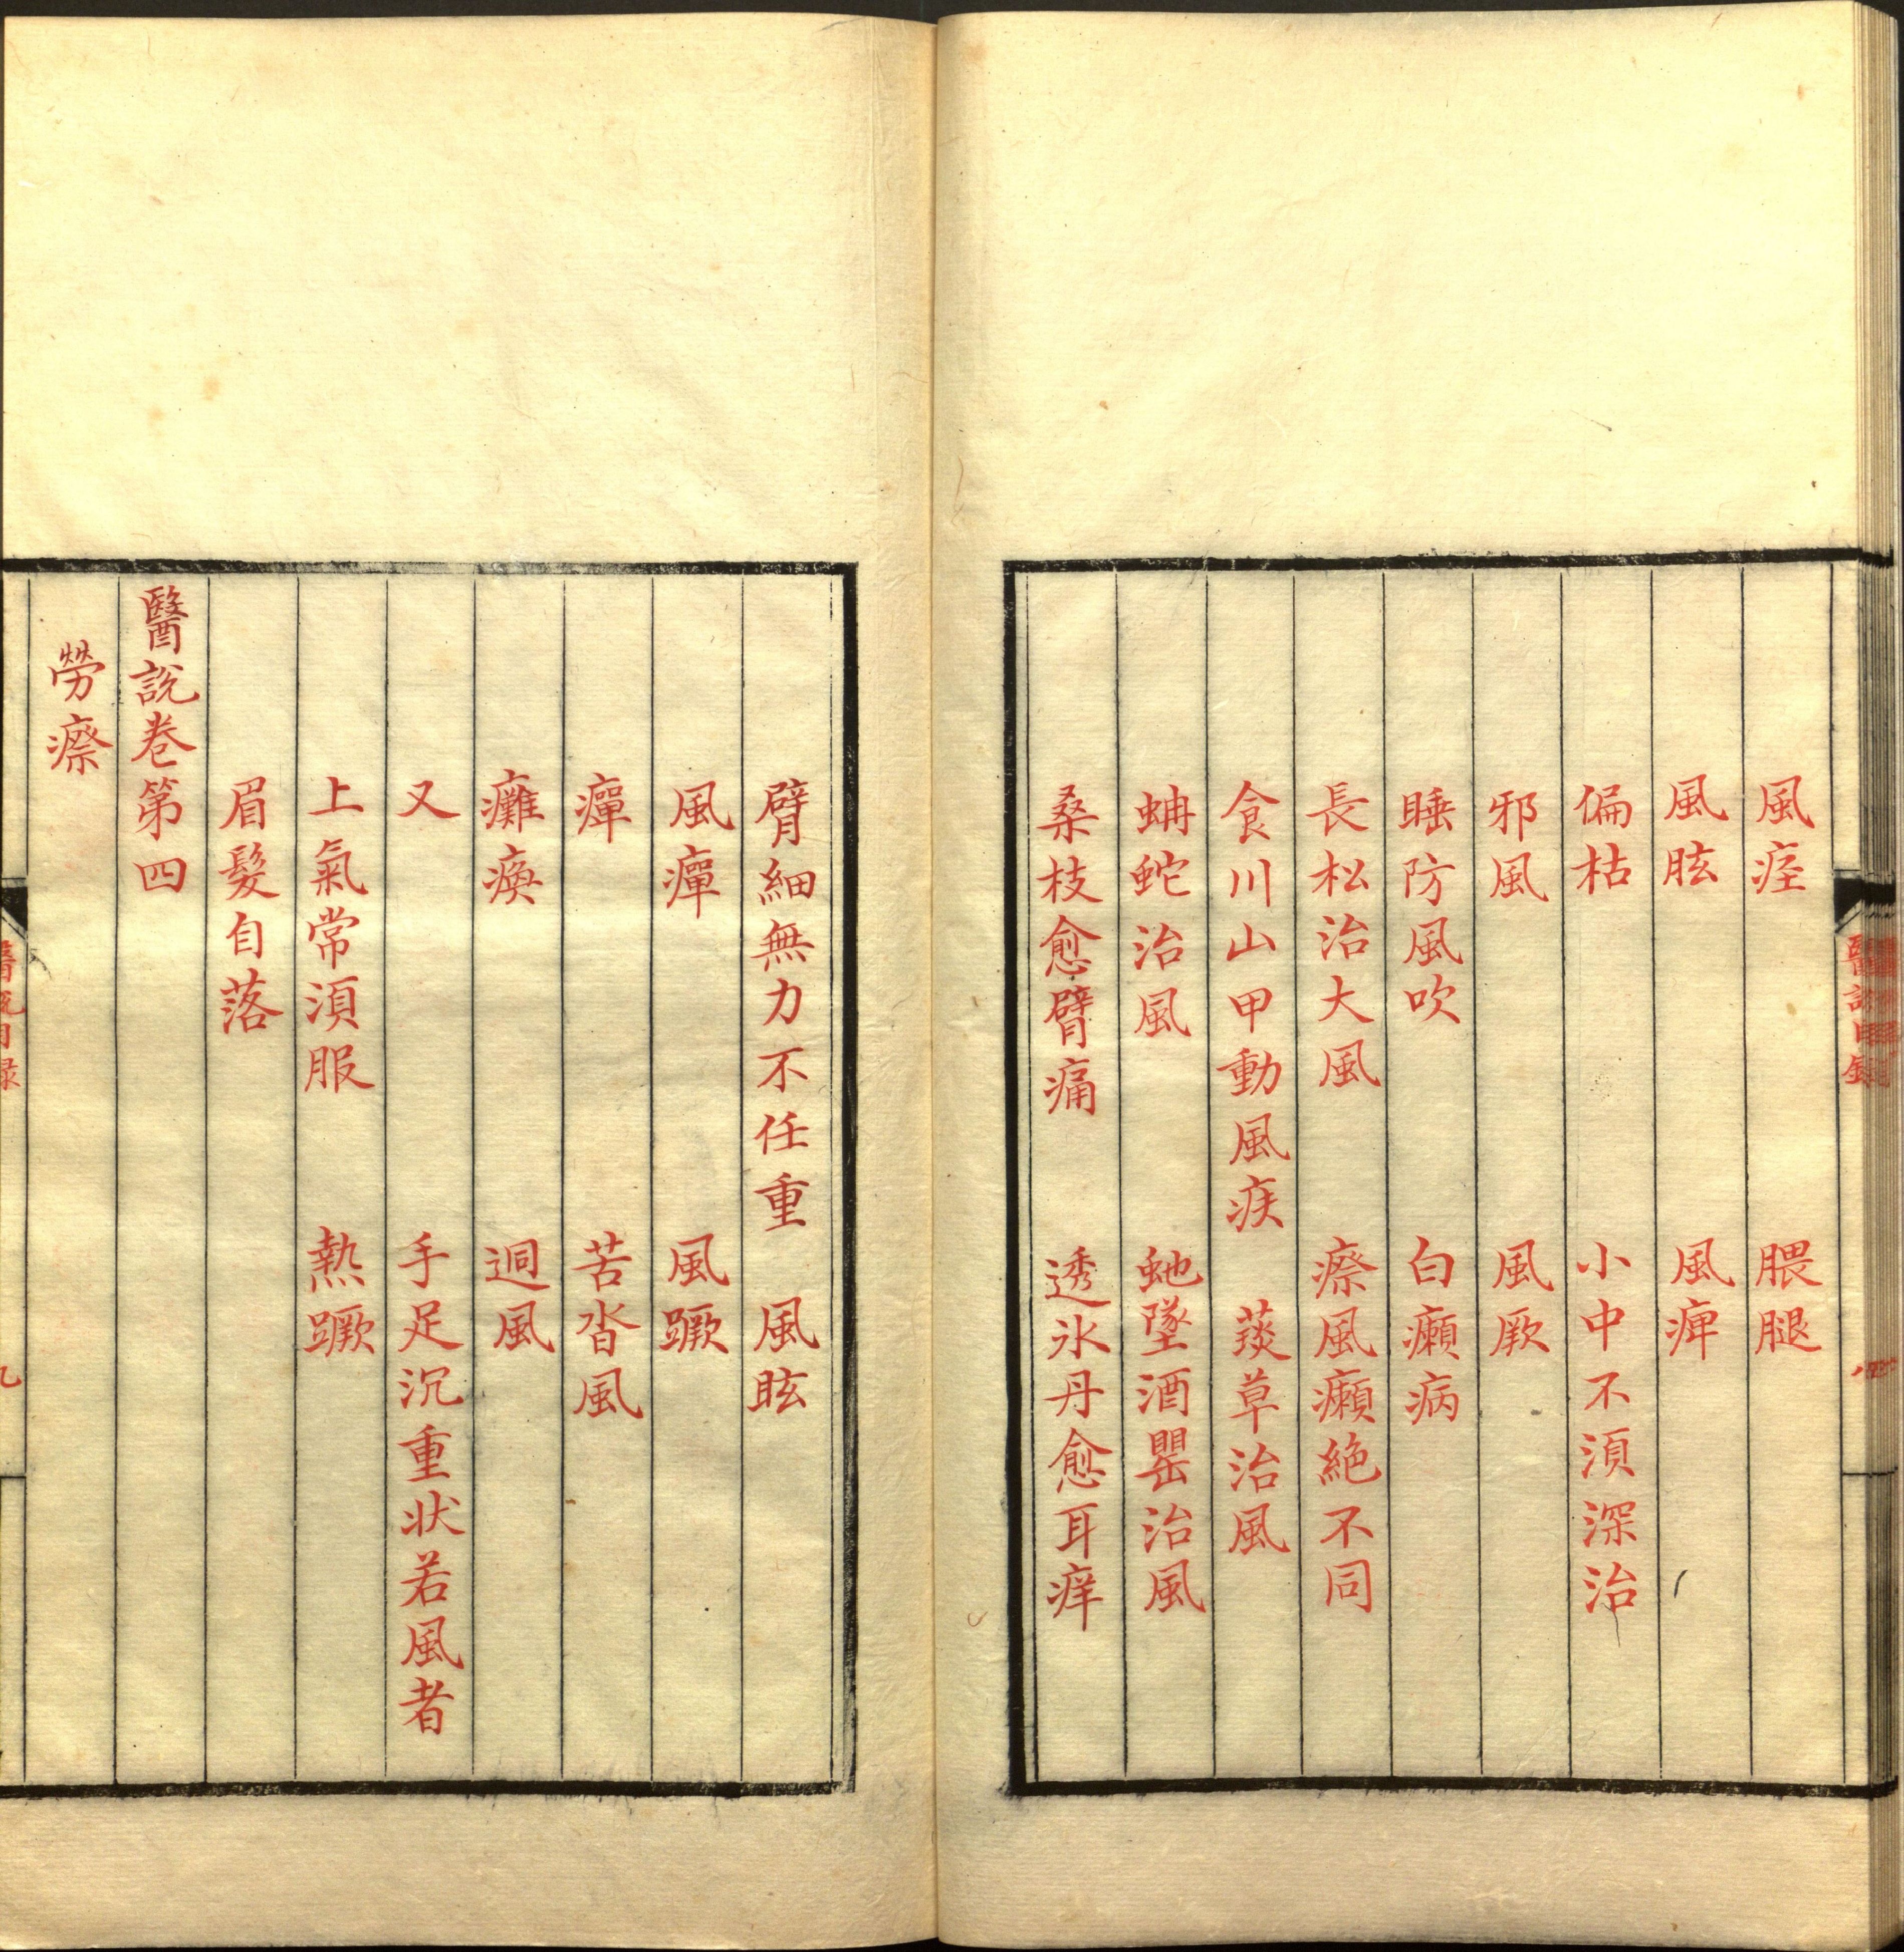 風痓　腲腿
風胘　風痺
偏枯　小中不湏深治
邪風　風厥
睡防風吹　白癩病
長松治大風　瘵風癩絶不同
食川山甲動風疾　菼草治風
蚺蛇治風　虵墜酒罌治風
桑枝愈臂痛　透氷丹愈耳痒
醫説目錄
臂細無力不任重　風眩
風癉　風蹶
癉　苦沓風
癱瘓　迵風
又　手足沉重状若風者
上氣常湏服　熱蹶
眉髮自落
醫説卷第四
勞瘵